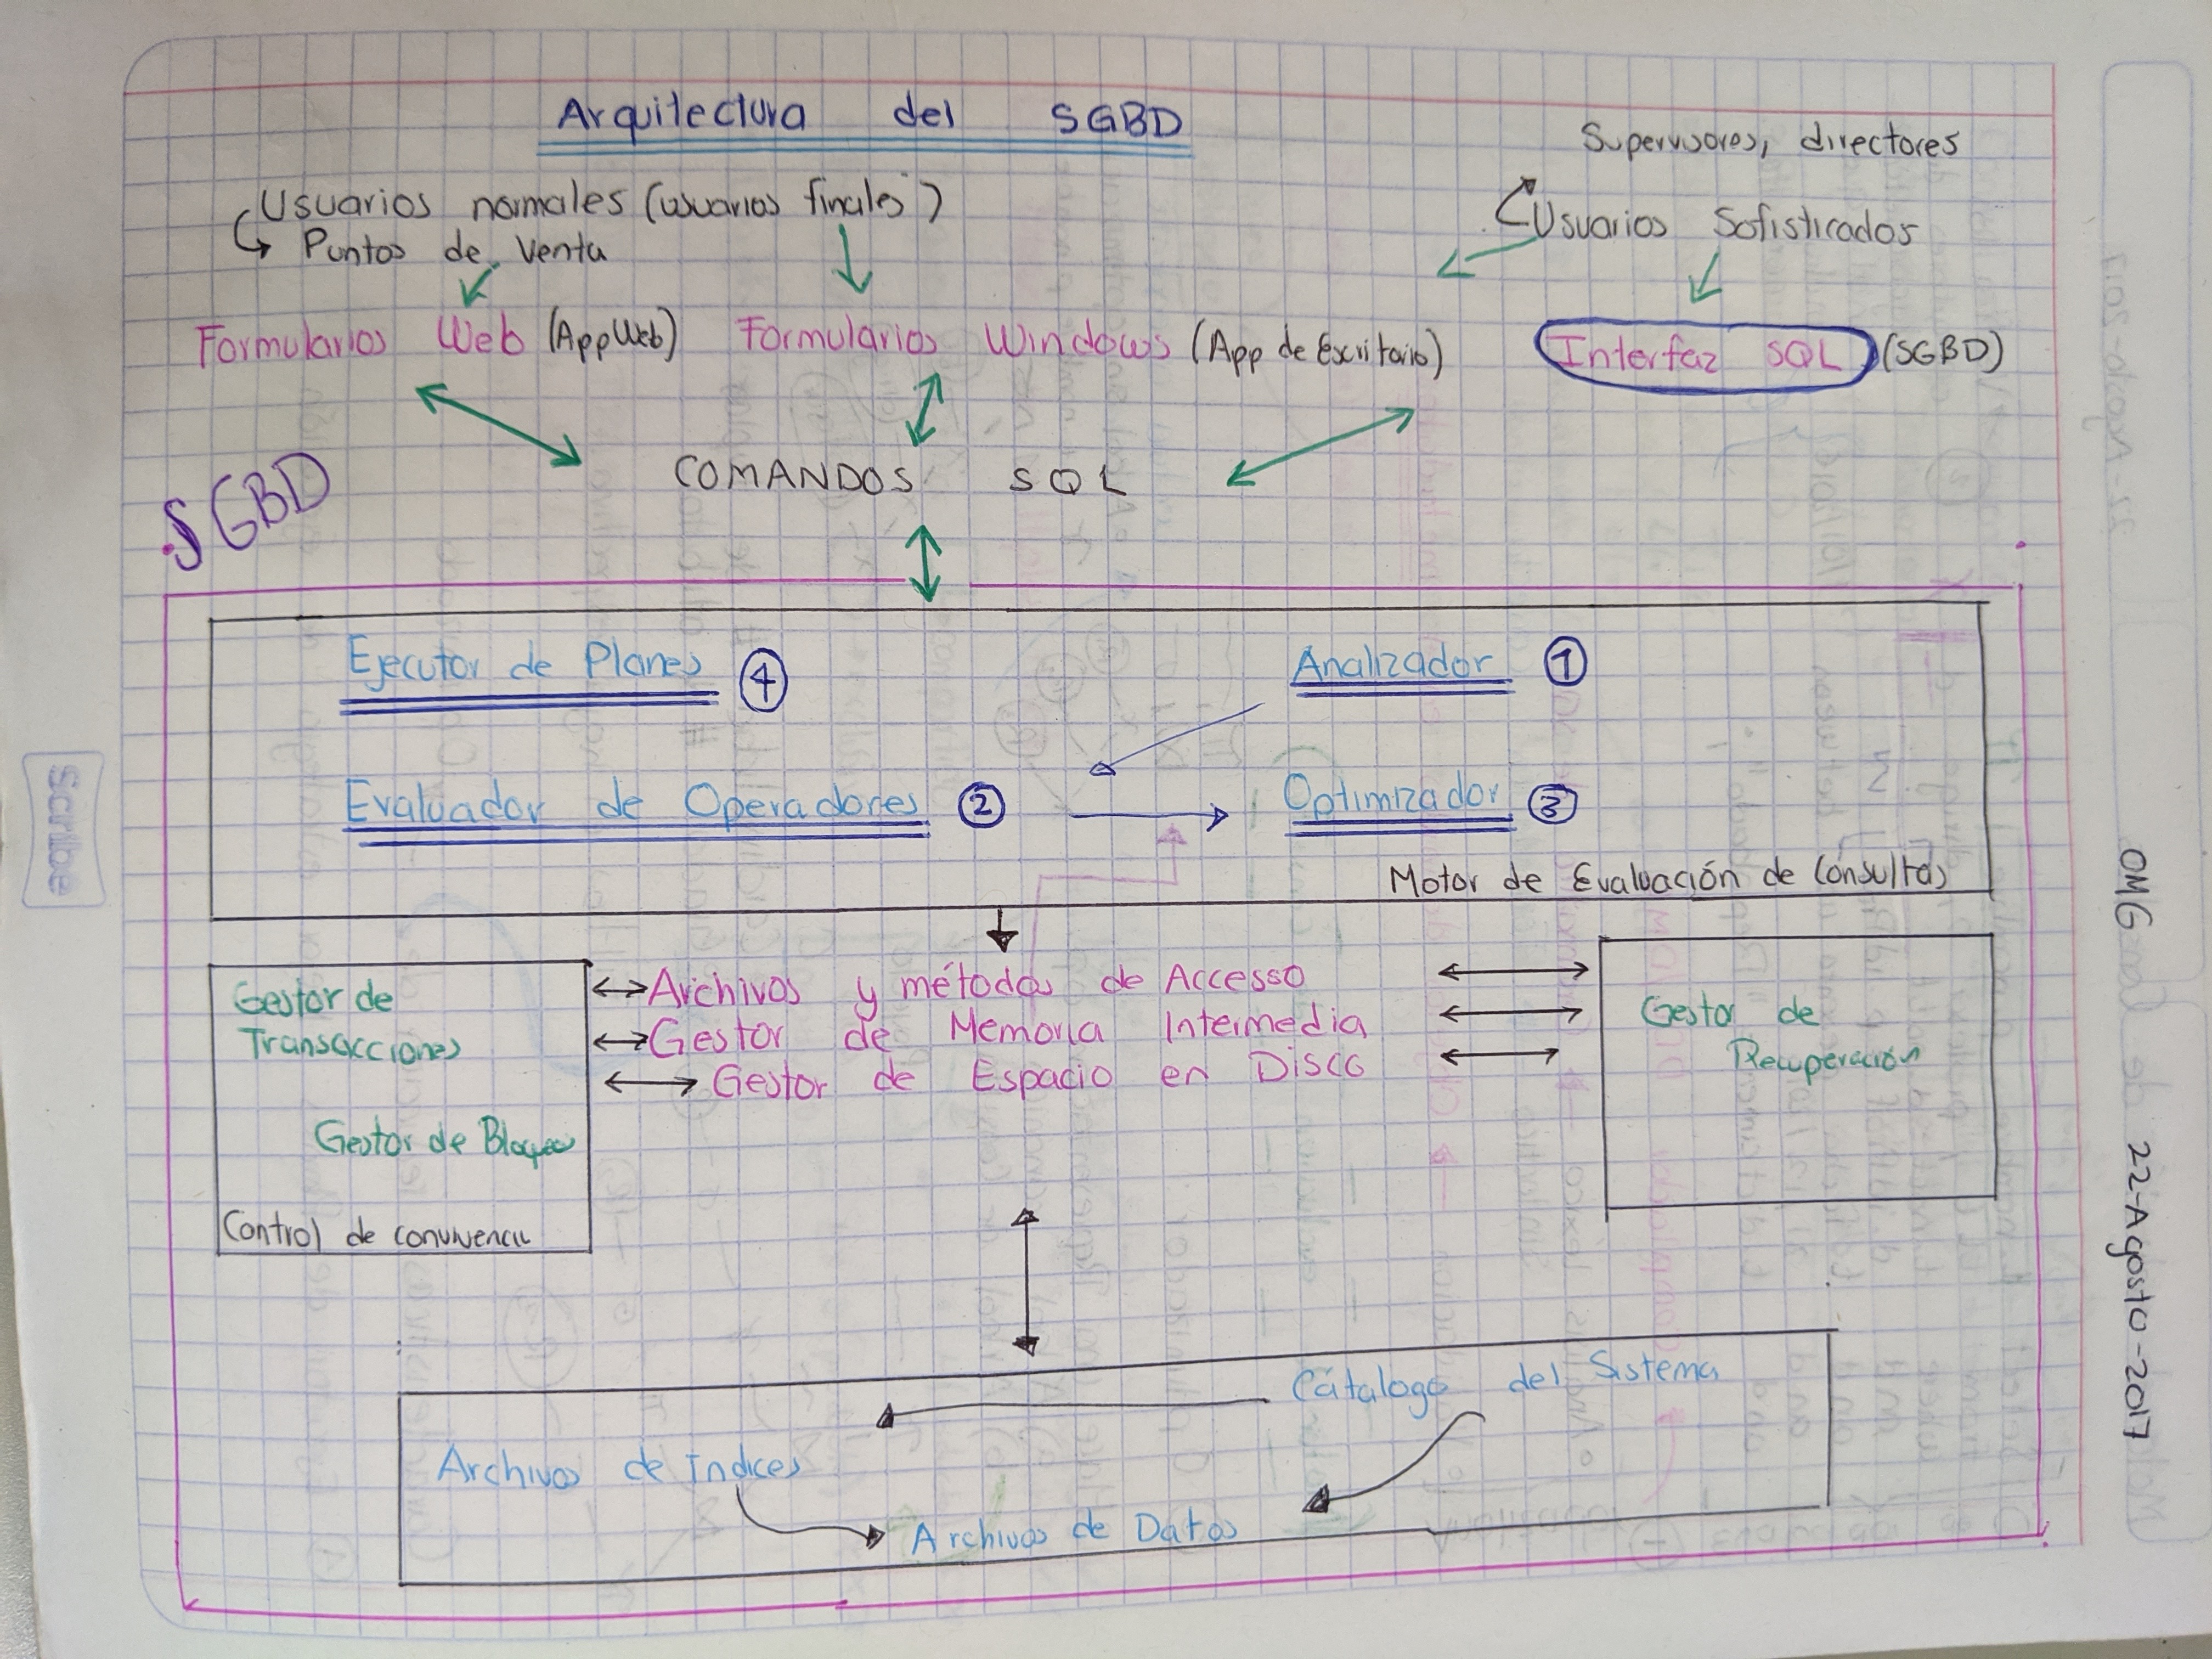 Arquitectura del SGBD
Supervisores, directores
Usuarios normales (usuarios finales)
Usuarios Sofisticados
Puntos de Venta
Formularios Web (App Web) Formularios Windows (App de Escritorio) Interfaz SQL (SGBD)
COMANDOS SQL
SGBD
Ejecutor de Planes 4
Analizador 1
Evaluador de Operadores 2
Optimizador 3
Motor de Evaluación de Consultas
Gestor de
Transacciones
Gestor de Bloqueo
Control de convivencia
Archivos y métodos de Accesso
Gestor de Memoria Intermedia
Gestor de Espacio en Disco
Gestor de
Recuperación
Cátalogo del Sistema
Archivos de Indices
Archivos de Datos
OMG 22-Agosto-2017
Scribe